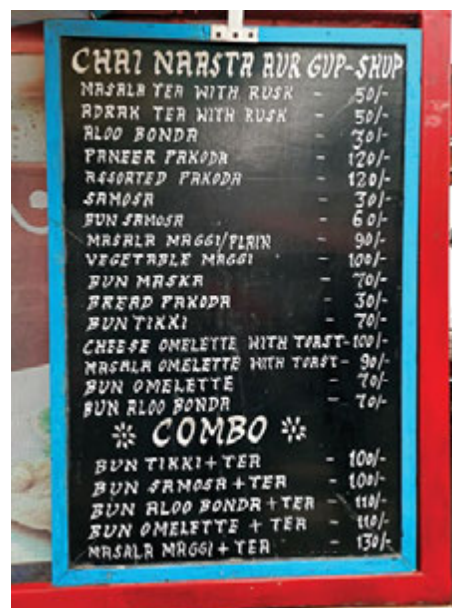 CHAI NAASTA AUR GUP-SHUP
MASALA TEA WITH RUSK - 50/-
ADRAK TEA WITH RUSK - 50/-
ALOO BONDA - 30/-
PANEER PAKODA - 120/-
ASSORTED PAKODA - 120/-
SAMOSA - 30/-
BUN SAMOSA - 60/-
MASALA MAGGI/PLAIN - 90/-
VEGETABLE MAGGI - 100/-
BUN MASKA - 70/-
BREAD PAKODA - 30/-
BUN TIKKI - 70/-
CHEESE OMELETTE WITH TOAST - 100/-
MASALA OMELETTE WITH TOAST - 90/-
BUN OMELETTE - 70/-
BUN ALOO BONDA - 70/-
COMBO
BUN TIKKI + TEA - 100/-
BUN SAMOSA + TEA - 100/-
BUN ALOO BONDA + TEA - 110/-
BUN OMELETTE + TEA - 110/-
MASALA MAGGI + TEA - 130/-